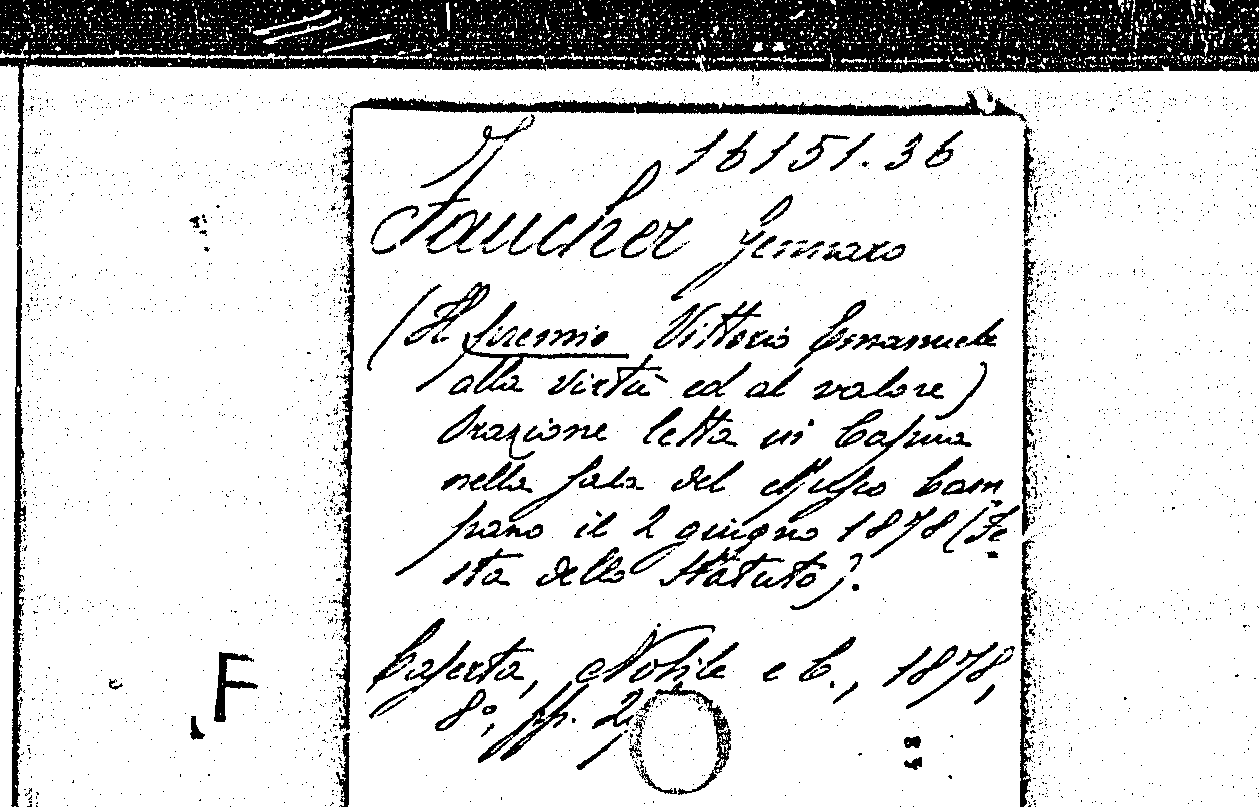 F 16151.36
Faucher Gennaro
(Il premio Vittorio Emanuele
alla virtù ed al valore)
Orazione letta in Capua
nella sala del Museo Cam
pano il 2 giugno 1878 (Fe-
sta dello Statuto).
Caserta, Nobile e C., 1878,
8°, pp.
F